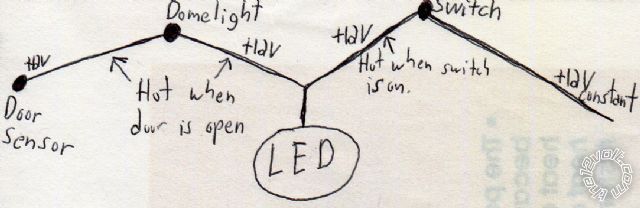 Domelight
Switch
+12V
+12V
+12V
Hot when switch
is on.
+12V
constant
Door
sensor
Hot when
door is open
LED
the12volt.com
• The p